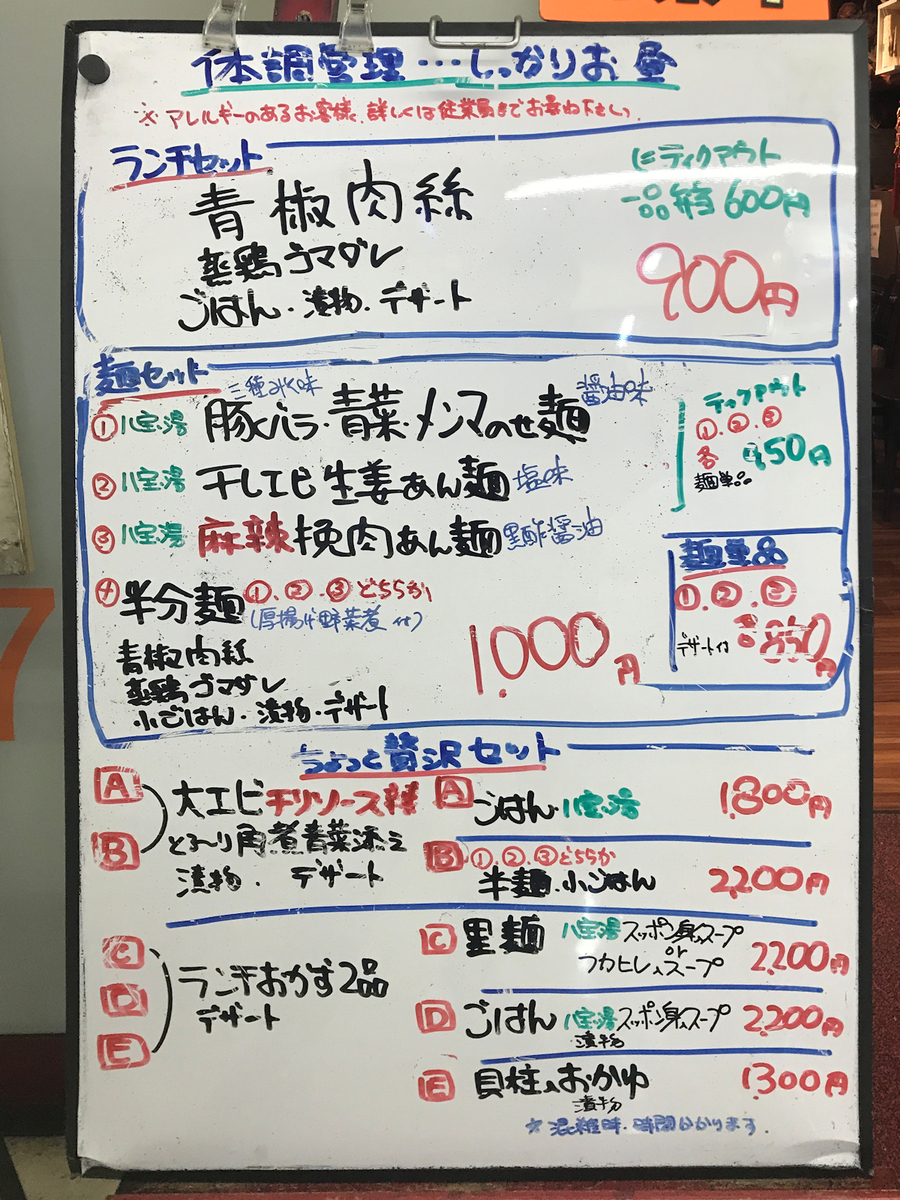 体調管理…しっかりお昼
※アレルギーのあるお客様、詳しくは従業員までお尋ね下さい。
ランチセット
青椒肉絲
蒸鶏ゴマダレ
ごはん・漬物・デザート
ティクアウト
一品 600円
900円
麺セット
三種みそ味
① 八宝湯 豚バラ・青菜・メンマのせ麺 醤油味
② 八宝湯 干しエビ生姜あん麺 塩味
③ 八宝湯 麻辣挽肉あん麺 黒酢醤油
④ 半分麺 ①.②.③どちらか
(厚揚げ野菜煮付)
青椒肉絲
蒸鶏ゴマダレ
小ごはん・漬物・デザート
1,000円
ティクアウト
①.②.③
各 50円
麺単品
麺単品
①.②.③
デザート付 850円
ちょっと贅沢セット
A B
大エビチリソース
とろ〜り角煮青菜添え
漬物・デザート
A ごはん・八宝湯 1,800円
B ①.②.③どちらか
半麺・小ごはん 2,200円
C D E
ランチおかず2品
デザート
C 麺 八宝湯スッポン身入スープ
or
フカヒレ入スープ 2,200円
D ごはん 八宝湯スッポン身入スープ 2,200円
漬物
E 貝柱入おかゆ 1,300円
漬物
☆混雑時、時間かかります。